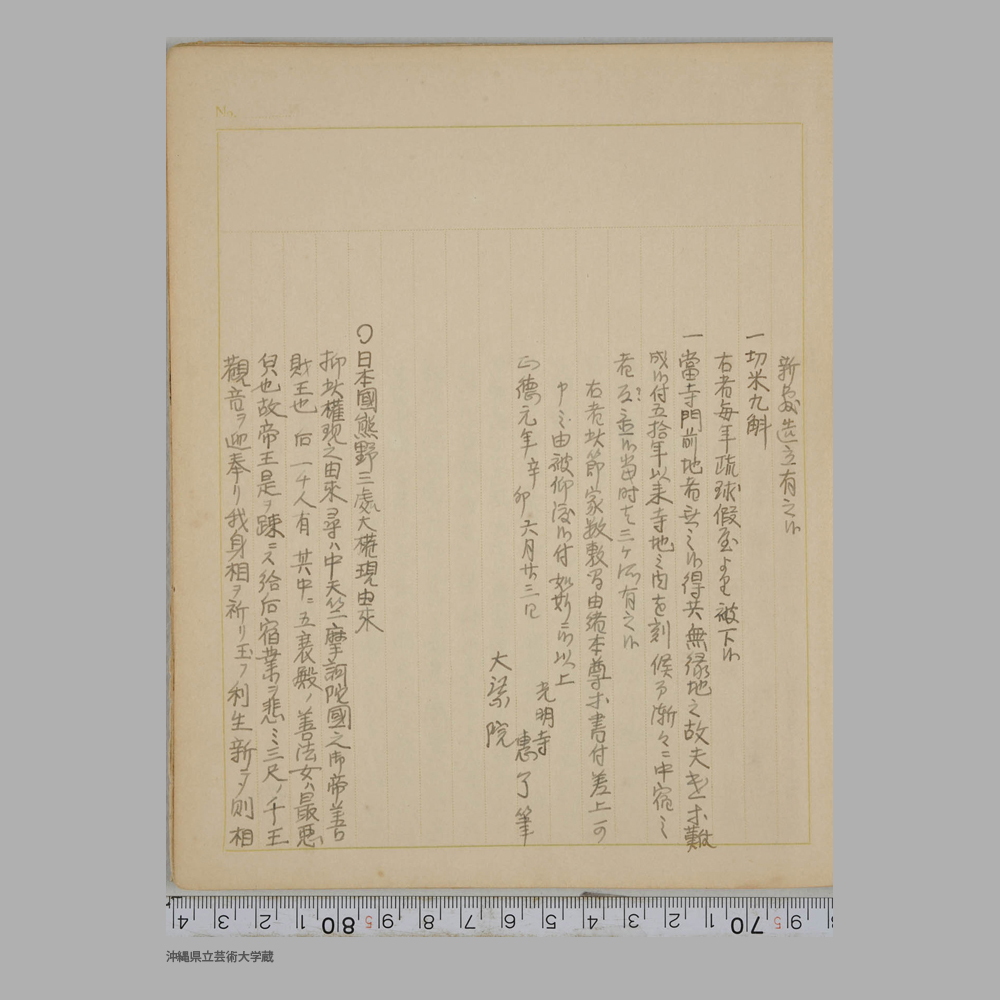 新ニ造立有之候
一切米九斛
右者毎年琉球假屋より被下候
一當寺門前地者無之候得共無縁地之故夫老等難
成候付五拾年以来寺地之内を刻候而漸々ニ中宿之
者召置候當時は三ヶ所有之候
右者此節家数敷高由緒本尊等書付差上可
申之由被仰渡候付如斯ニ候以上
正徳元年辛卯六月廿三日
光明寺
恵了筆
大染院
〇日本國熊野三處大権現由來
抑此権現之由來尋ハ中天竺摩訶陀國之御帝善
財王也 后一千人有 其中ニ五衰殿ノ善法女ハ最悪
貝也故帝王是ヲ踈ニス給后宿業ヲ悲ミ三尺ノ千王
觀音ヲ迎奉リ我身相ヲ祈リ玉フ利生新ニヲ則相
No.
4 3 2 1 80 9 8 7 6 5 4 3 2 1 70 9
沖縄県立芸術大学蔵